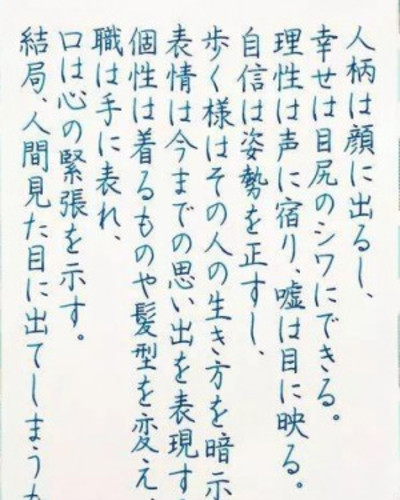 人柄は顔に出るし、
幸せは目尻のシワにできる。
理性は声に宿り、嘘は目に映る。
自信は姿勢を正すし、
歩く様はその人の生き方を暗示
表情は今までの思い出を表現す
個性は着るものや髪型を変え、
職は手に表れ、
口は心の緊張を示す。
結局、人間見た目に出てしまう